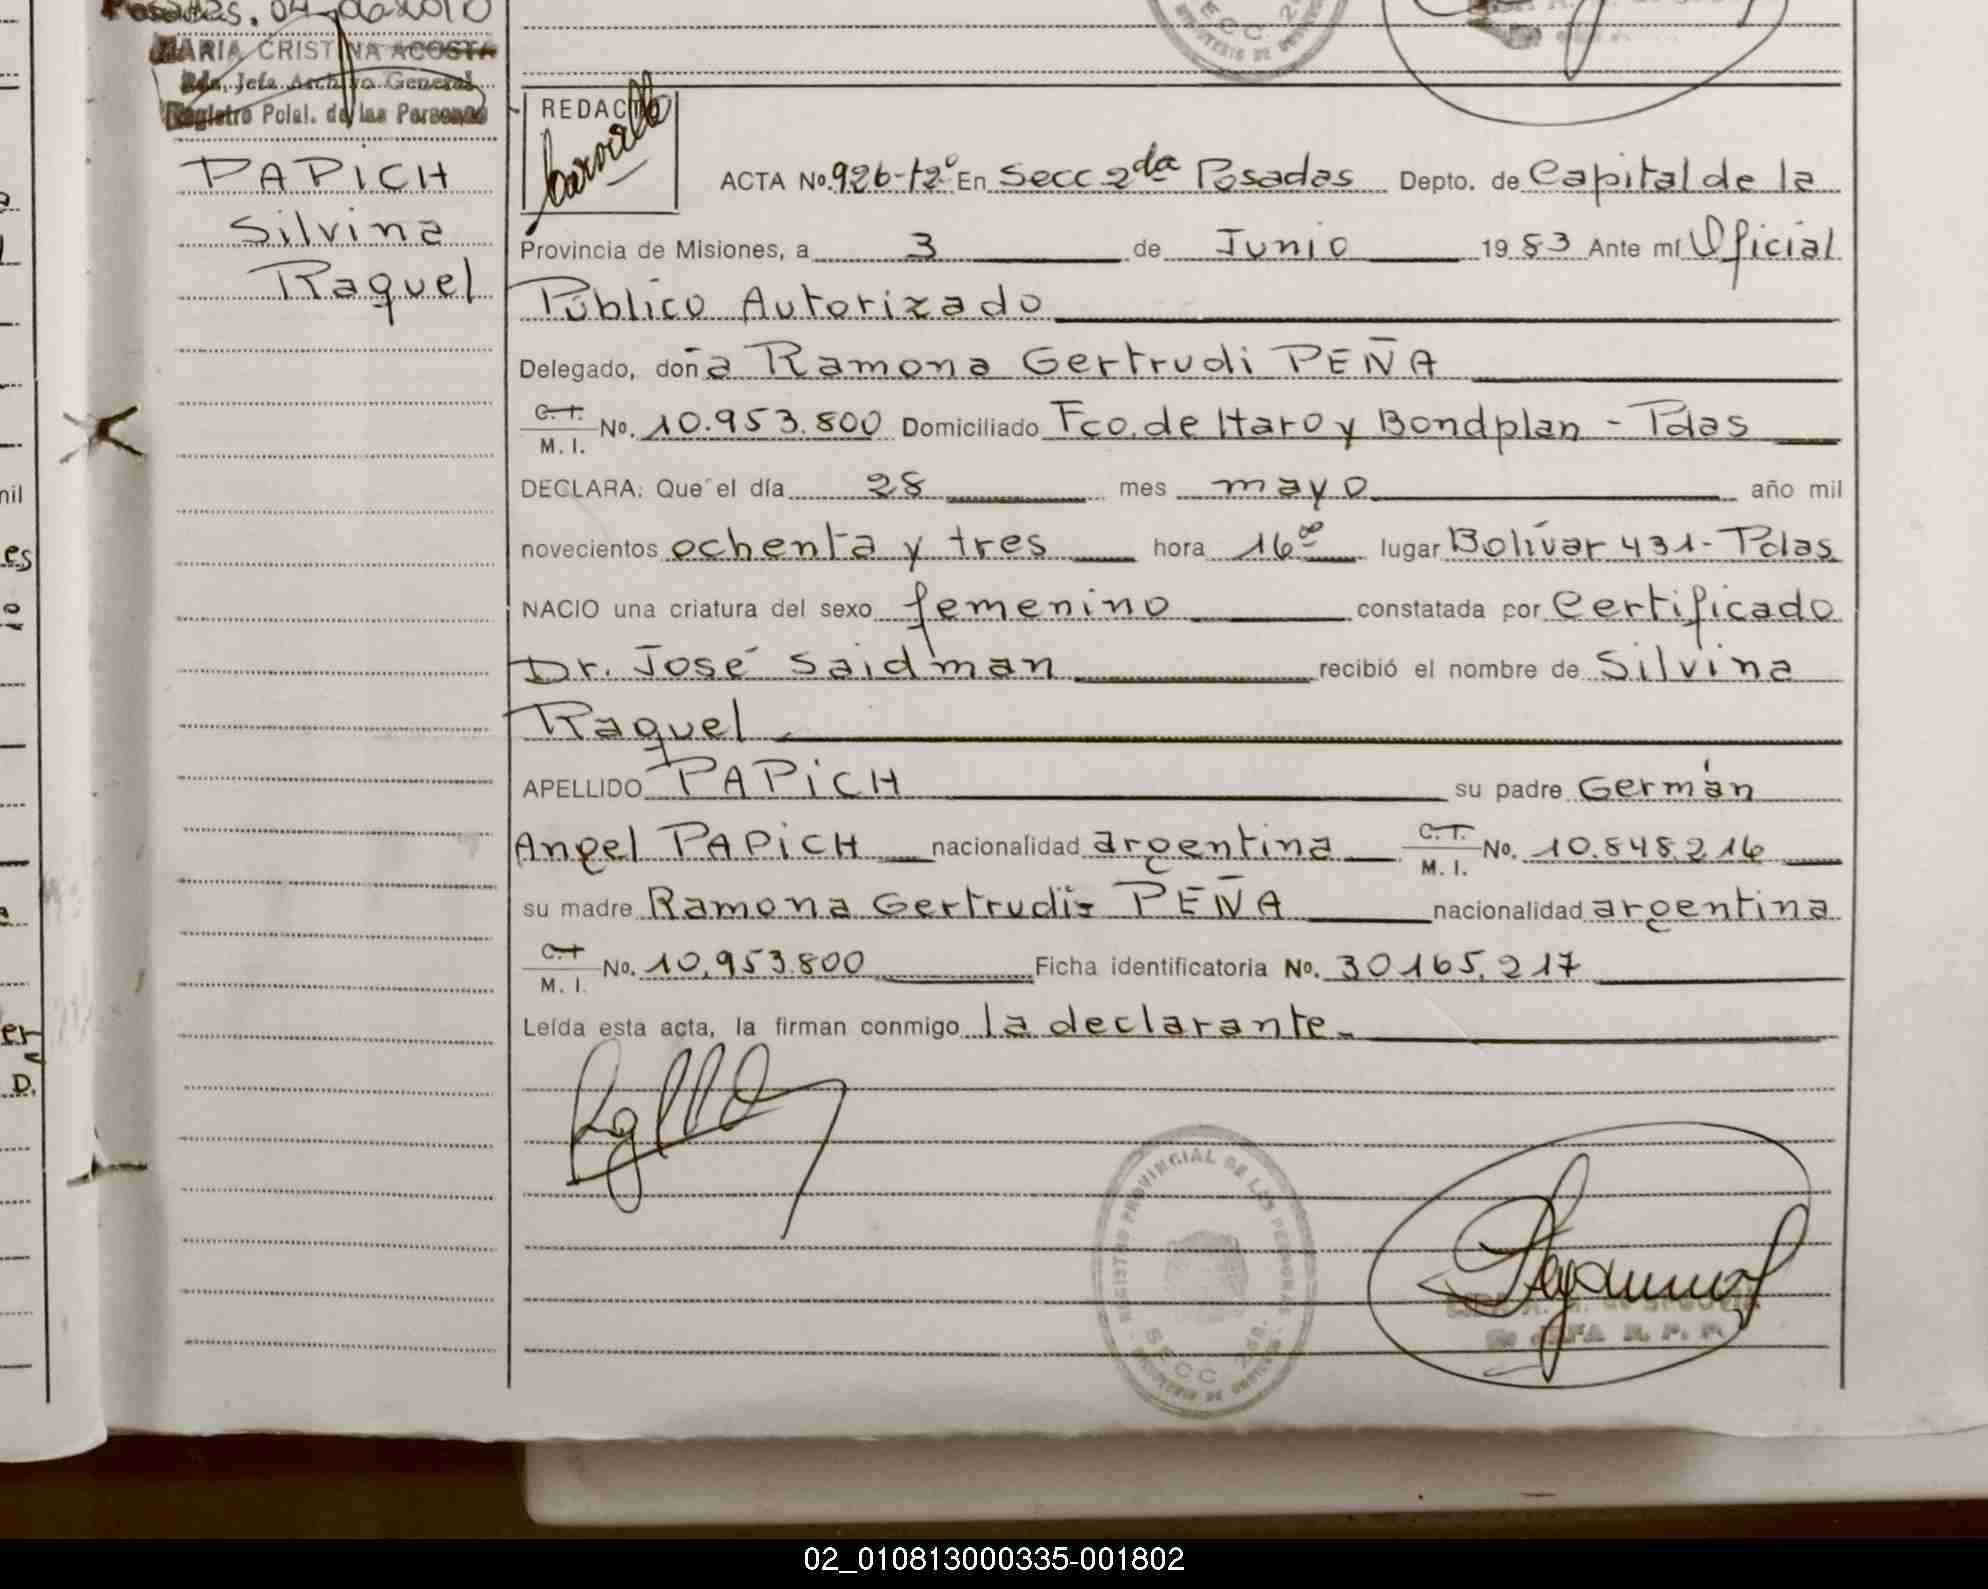 Posadas, 04
MARIA CRISTINA ACOSTA
Jefa Archivo General
Registro Pcial. de las Personas
PAPICH
Silvina
Raquel
nil
es
er
D.
REDACTO
ACTA No. 926-T2º En Secc 2da Posadas Depto. de Capital de la
Provincia de Misiones, a 3 de Junio 1983 Ante mí Oficial
Público Autorizado
Delegado, doña Ramona Gertrudi PEÑA
C.I.
M. I. No. 10.953.800 Domiciliado Fco. de Haro y Bondplan - Pdas
DECLARA: Que el día 28 mes mayo año mil
novecientos ochenta y tres hora 16 lugar Bolívar 431- Pdas
NACIO una criatura del sexo femenino constatada por Certificado
Dr. José Saidman recibió el nombre de Silvina
Raquel
APELLIDO PAPICH su padre Germán
Angel PAPICH nacionalidad argentina C.I. M. I. No. 10.848.216
su madre Ramona Gertrudis PEÑA nacionalidad argentina
C.I.
M. I. No. 10.953.800 Ficha identificatoria No. 30165.217
Leída esta acta, la firman conmigo la declarante.-
REGISTRO PROVINCIAL DE LAS PERSONAS
SECC 2da.
02_010813000335-001802